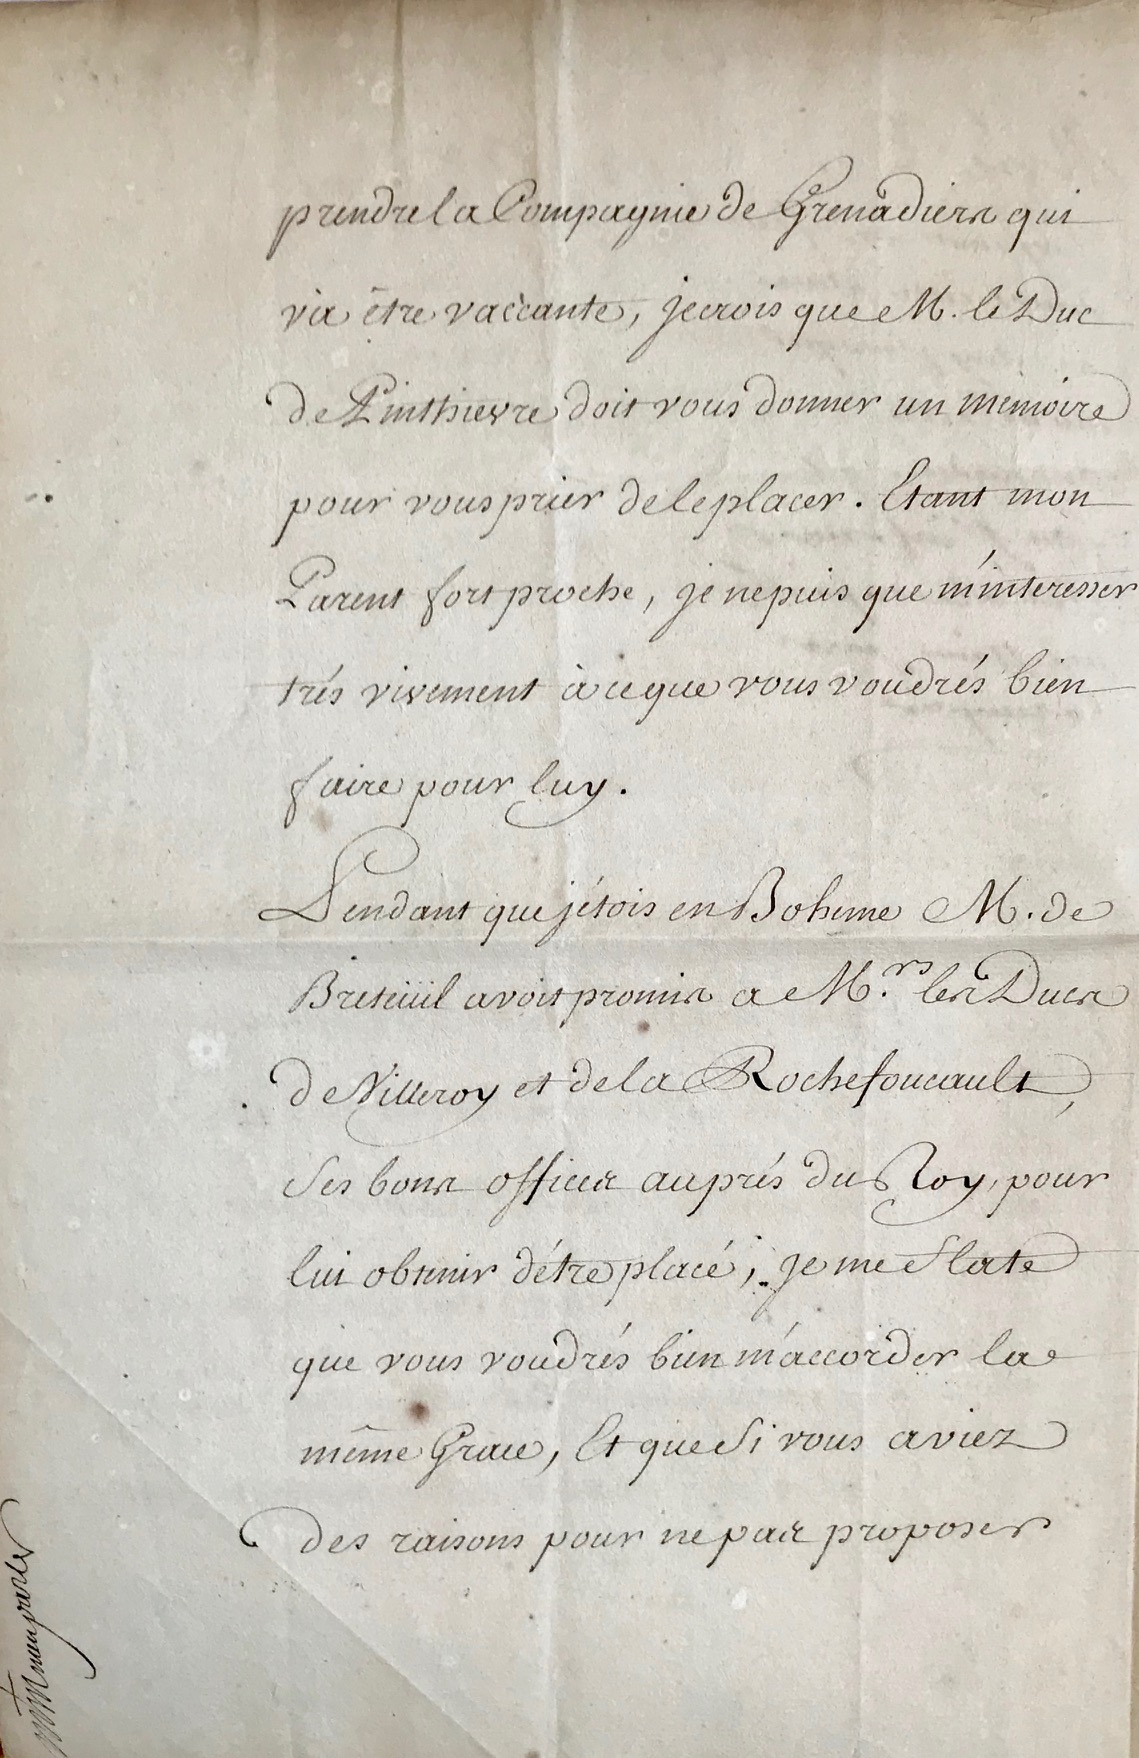 prendre la Compagnie de Grenadiers qui
va être vaccante, je crois que M. le Duc
de Pinthievre doit vous donner un mémoire
pour vous prier de le placer. Etant mon
Parent fort proche, je ne puis que m'interesser
trés vivement à ce que vous voudrés bien
faire pour luy.
Pendant que j'étois en Boheme M. de
Breteüil avoit promis a M.rs les Ducs
de Villeroy et de la Rochefoucault,
Ses bons offices auprés du Roy, pour
lui obtenir d'étre placé; je me flate
que vous voudrés bien m'accorder la
même Grace, Et que Si vous aviez
des raisons pour ne pas proposer